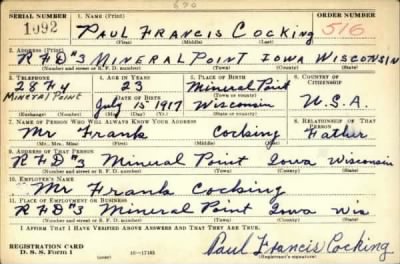 690
SERIAL NUMBER 1. NAME (Print) ORDER NUMBER
1092 PAUL FRANCIS COCKING 516
(First) (Middle) (Last)
2. ADDRESS (Print)
RFD #3 MINERAL POINT IOWA WISCONSIN
(Number and street or R. F. D. number) (Town) (County) (State)
3. TELEPHONE 4. AGE IN YEARS 5. PLACE OF BIRTH 6. COUNTRY OF CITIZENSHIP
28F4 23 Mineral Point
Mineral Point DATE OF BIRTH (Town or county)
July 15 1917 Wisconsin U.S.A.
(Exchange) (Number) (Mo.) (Day) (Yr.) (State or country)
7. NAME OF PERSON WHO WILL ALWAYS KNOW YOUR ADDRESS 8. RELATIONSHIP OF THAT PERSON
Mr Frank Cocking Father
(Mr., Mrs., Miss) (First) (Middle) (Last)
9. ADDRESS OF THAT PERSON
RFD #3 Mineral Point Iowa Wisconsin
(Number and street or R. F. D. number) (Town) (County) (State)
10. EMPLOYER'S NAME
Mr Frank Cocking
11. PLACE OF EMPLOYMENT OR BUSINESS
RFD #3 Mineral Point Iowa Wis
(Number and street or R. F. D. number) (Town) (County) (State)
I AFFIRM THAT I HAVE VERIFIED ABOVE ANSWERS AND THAT THEY ARE TRUE.
REGISTRATION CARD
D. S. S. Form 1 16—17105 Paul Francis Cocking
(Registrant's signature)